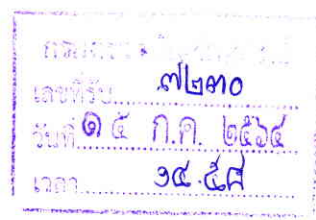 เลขที่รับ ๗๒๓๐
วันที่ ๑๕ ก.ค. ๒๕๖๔
เวลา ๑๔.๕๘